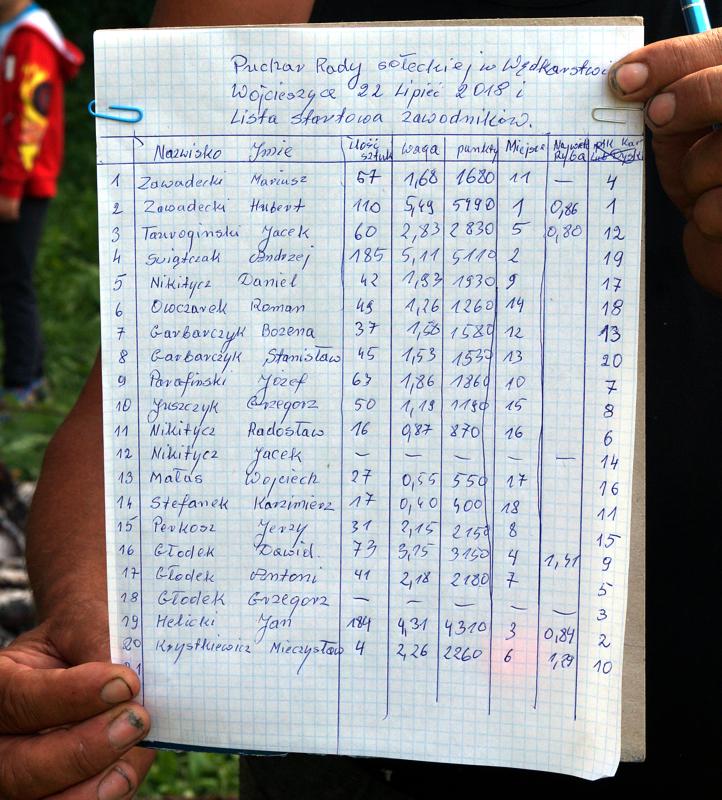 Puchar Rady sołeckiej w Wędkarstwie
Wojcieszyce 22 Lipiec 2018 r
Lista startowa zawodników.
Nazwisko Jmię Ilość sztuk waga punkty Miejsce Najwięk Ryba
1 Zawadecki Mariusz 67 1,68 1680 11 — 4
2 Zawadecki Hubert 110 5,49 5490 1 0,86 1
3 Taurogiński Jacek 60 2,83 2830 5 0,80 12
4 Świątczak Andrzej 185 5,11 5110 2 19
5 Nikitycz Daniel 42 1,93 1930 9 17
6 Owczarek Roman 49 1,26 1260 14 18
7 Garbarczyk Bożena 37 1,58 1580 12 13
8 Garbarczyk Stanisław 45 1,53 1530 13 20
9 Parafiński Józef 63 1,86 1860 10 7
10 Juszczyk Grzegorz 50 1,19 1190 15 8
11 Nikitycz Radosław 16 0,87 870 16 6
12 Nikitycz Jacek — — — — — 14
13 Małas Wojciech 27 0,55 550 17 16
14 Stefanek Kazimierz 17 0,40 400 18 11
15 Perkosz Jerzy 31 2,15 2150 8 15
16 Głodek Dawid. 73 3,15 3150 4 1,41 9
17 Głodek Antoni 41 2,18 2180 7 5
18 Głodek Grzegorz — — — — — 3
19 Helicki Jan 184 4,31 4310 3 0,84 2
20 Krystkiewicz Mieczysław 4 2,26 2260 6 1,29 10
21